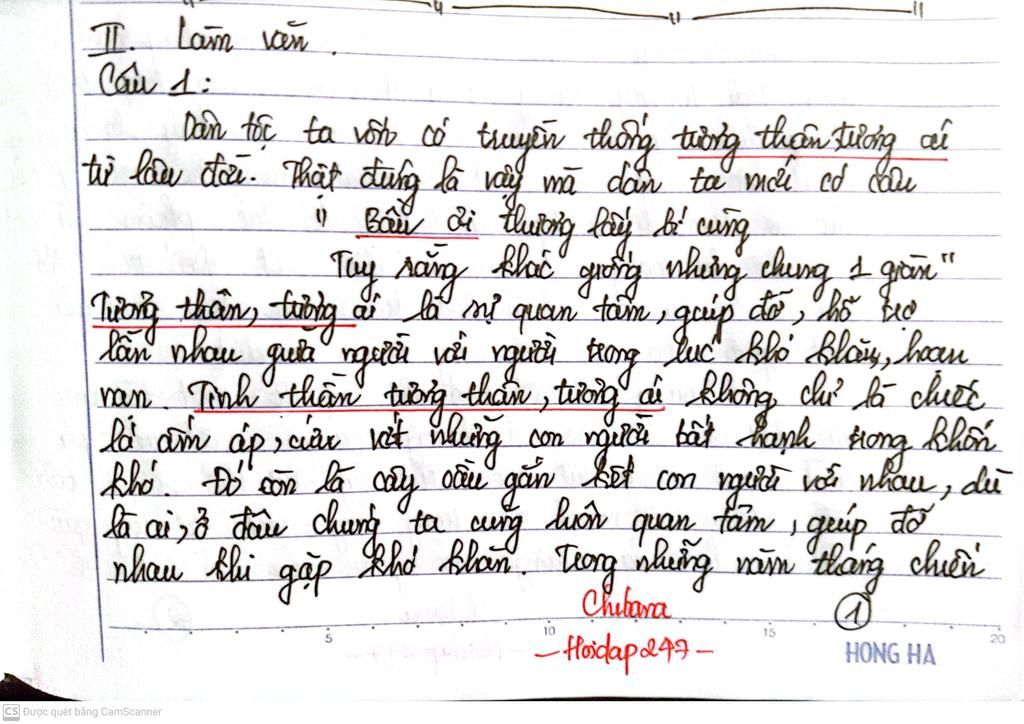 II. Làm văn.
Câu 1:
Dân tộc ta vốn có truyền thống tương thân tương ái
từ lâu đời. Thật đúng là vậy mà dân ta mới có câu
" Bầu ơi thương lấy bí cùng
Tuy rằng khác giống nhưng chung 1 giàn"
Tương thân, tương ái là sự quan tâm, giúp đỡ, hỗ trợ
lẫn nhau giữa người với người trong lúc khó khăn, hoạn
nạn. Tinh thần tương thân, tương ái không chỉ là chiếc
lá ấm áp, cứu vớt những con người bất hạnh trong khốn
khó Đó còn là cây cầu gắn kết con người với nhau, dù
là ai, ở đâu chúng ta cũng luôn quan tâm, giúp đỡ
nhau khi gặp khó khăn Trong những năm tháng chiến
Chibana
1
- Hoidap247 -
5 10 15 20
HONG HA
CS Được quét bằng CamScanner